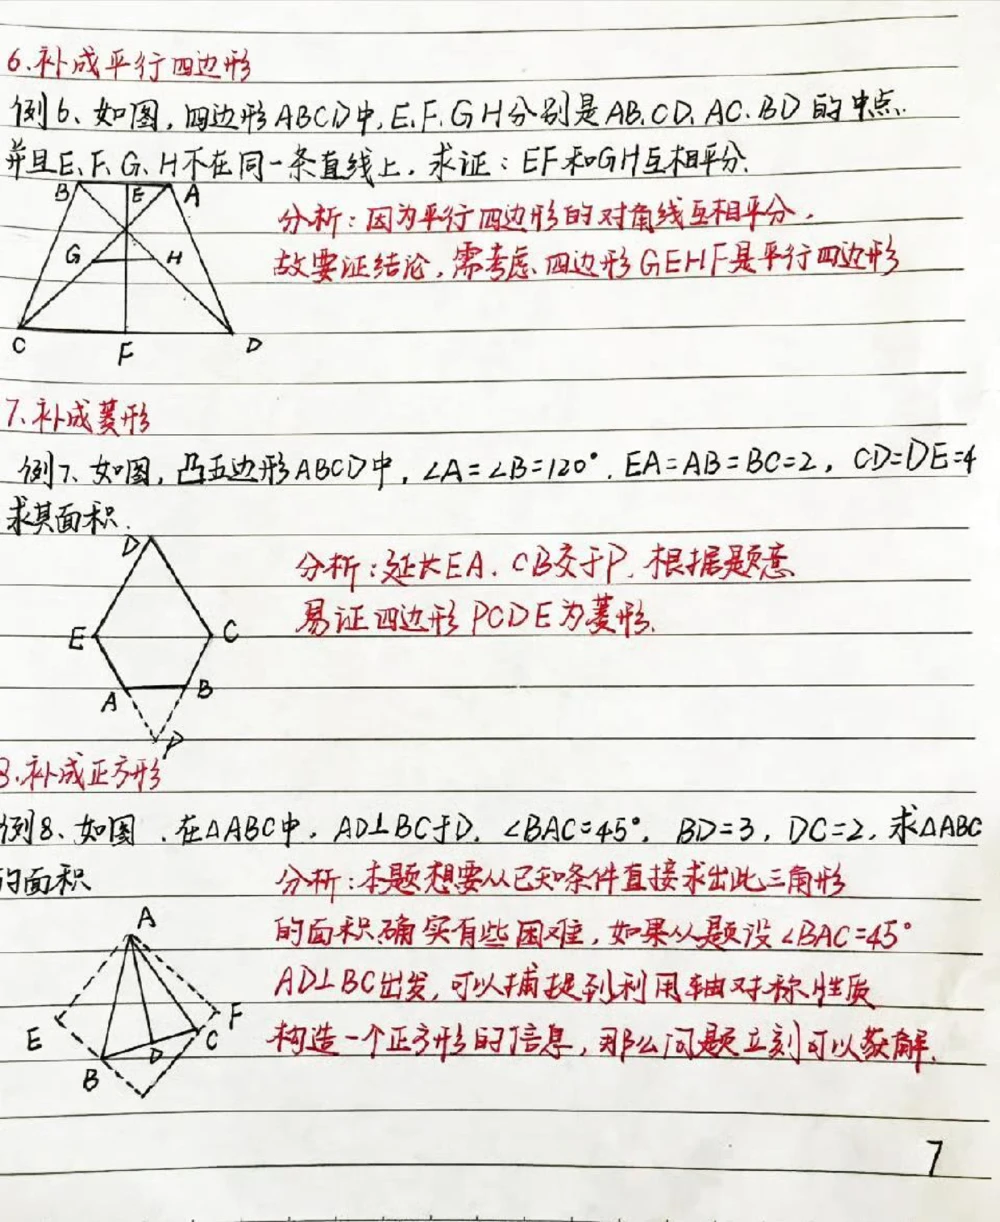 6.补成平行四边形
例6、如图，四边形ABCD中，E.F.G H分别是AB.CD.AC.BD的中点.
并且E、F、G、H不在同一条直线上，求证：EF和GH互相平分.
B E A
分析：因为平行四边形的对角线互相平分，
G H
故要证结论，需考虑四边形GEHF是平行四边形
C F D
7、补成菱形
例7、如图，凸五边形ABCD中，∠A=∠B=120°，EA=AB=BC=2，CD=DE=4
求其面积.
D
分析：延长EA、CB交于P，根据题意
易证四边形PCDE为菱形.
E C
A B
P
8.补成正方形
例8、如图，在△ABC中，AD⊥BC于D，∠BAC=45°，BD=3，DC=2，求△ABC
的面积
分析：本题想要从已知条件直接求出此三角形
A
的面积确实有些困难，如果从题设∠BAC=45°
AD⊥BC出发，可以捕捉到利用轴对称性质
E F
构造一个正方形的信息，那么问题立刻可以获解.
B D C
7